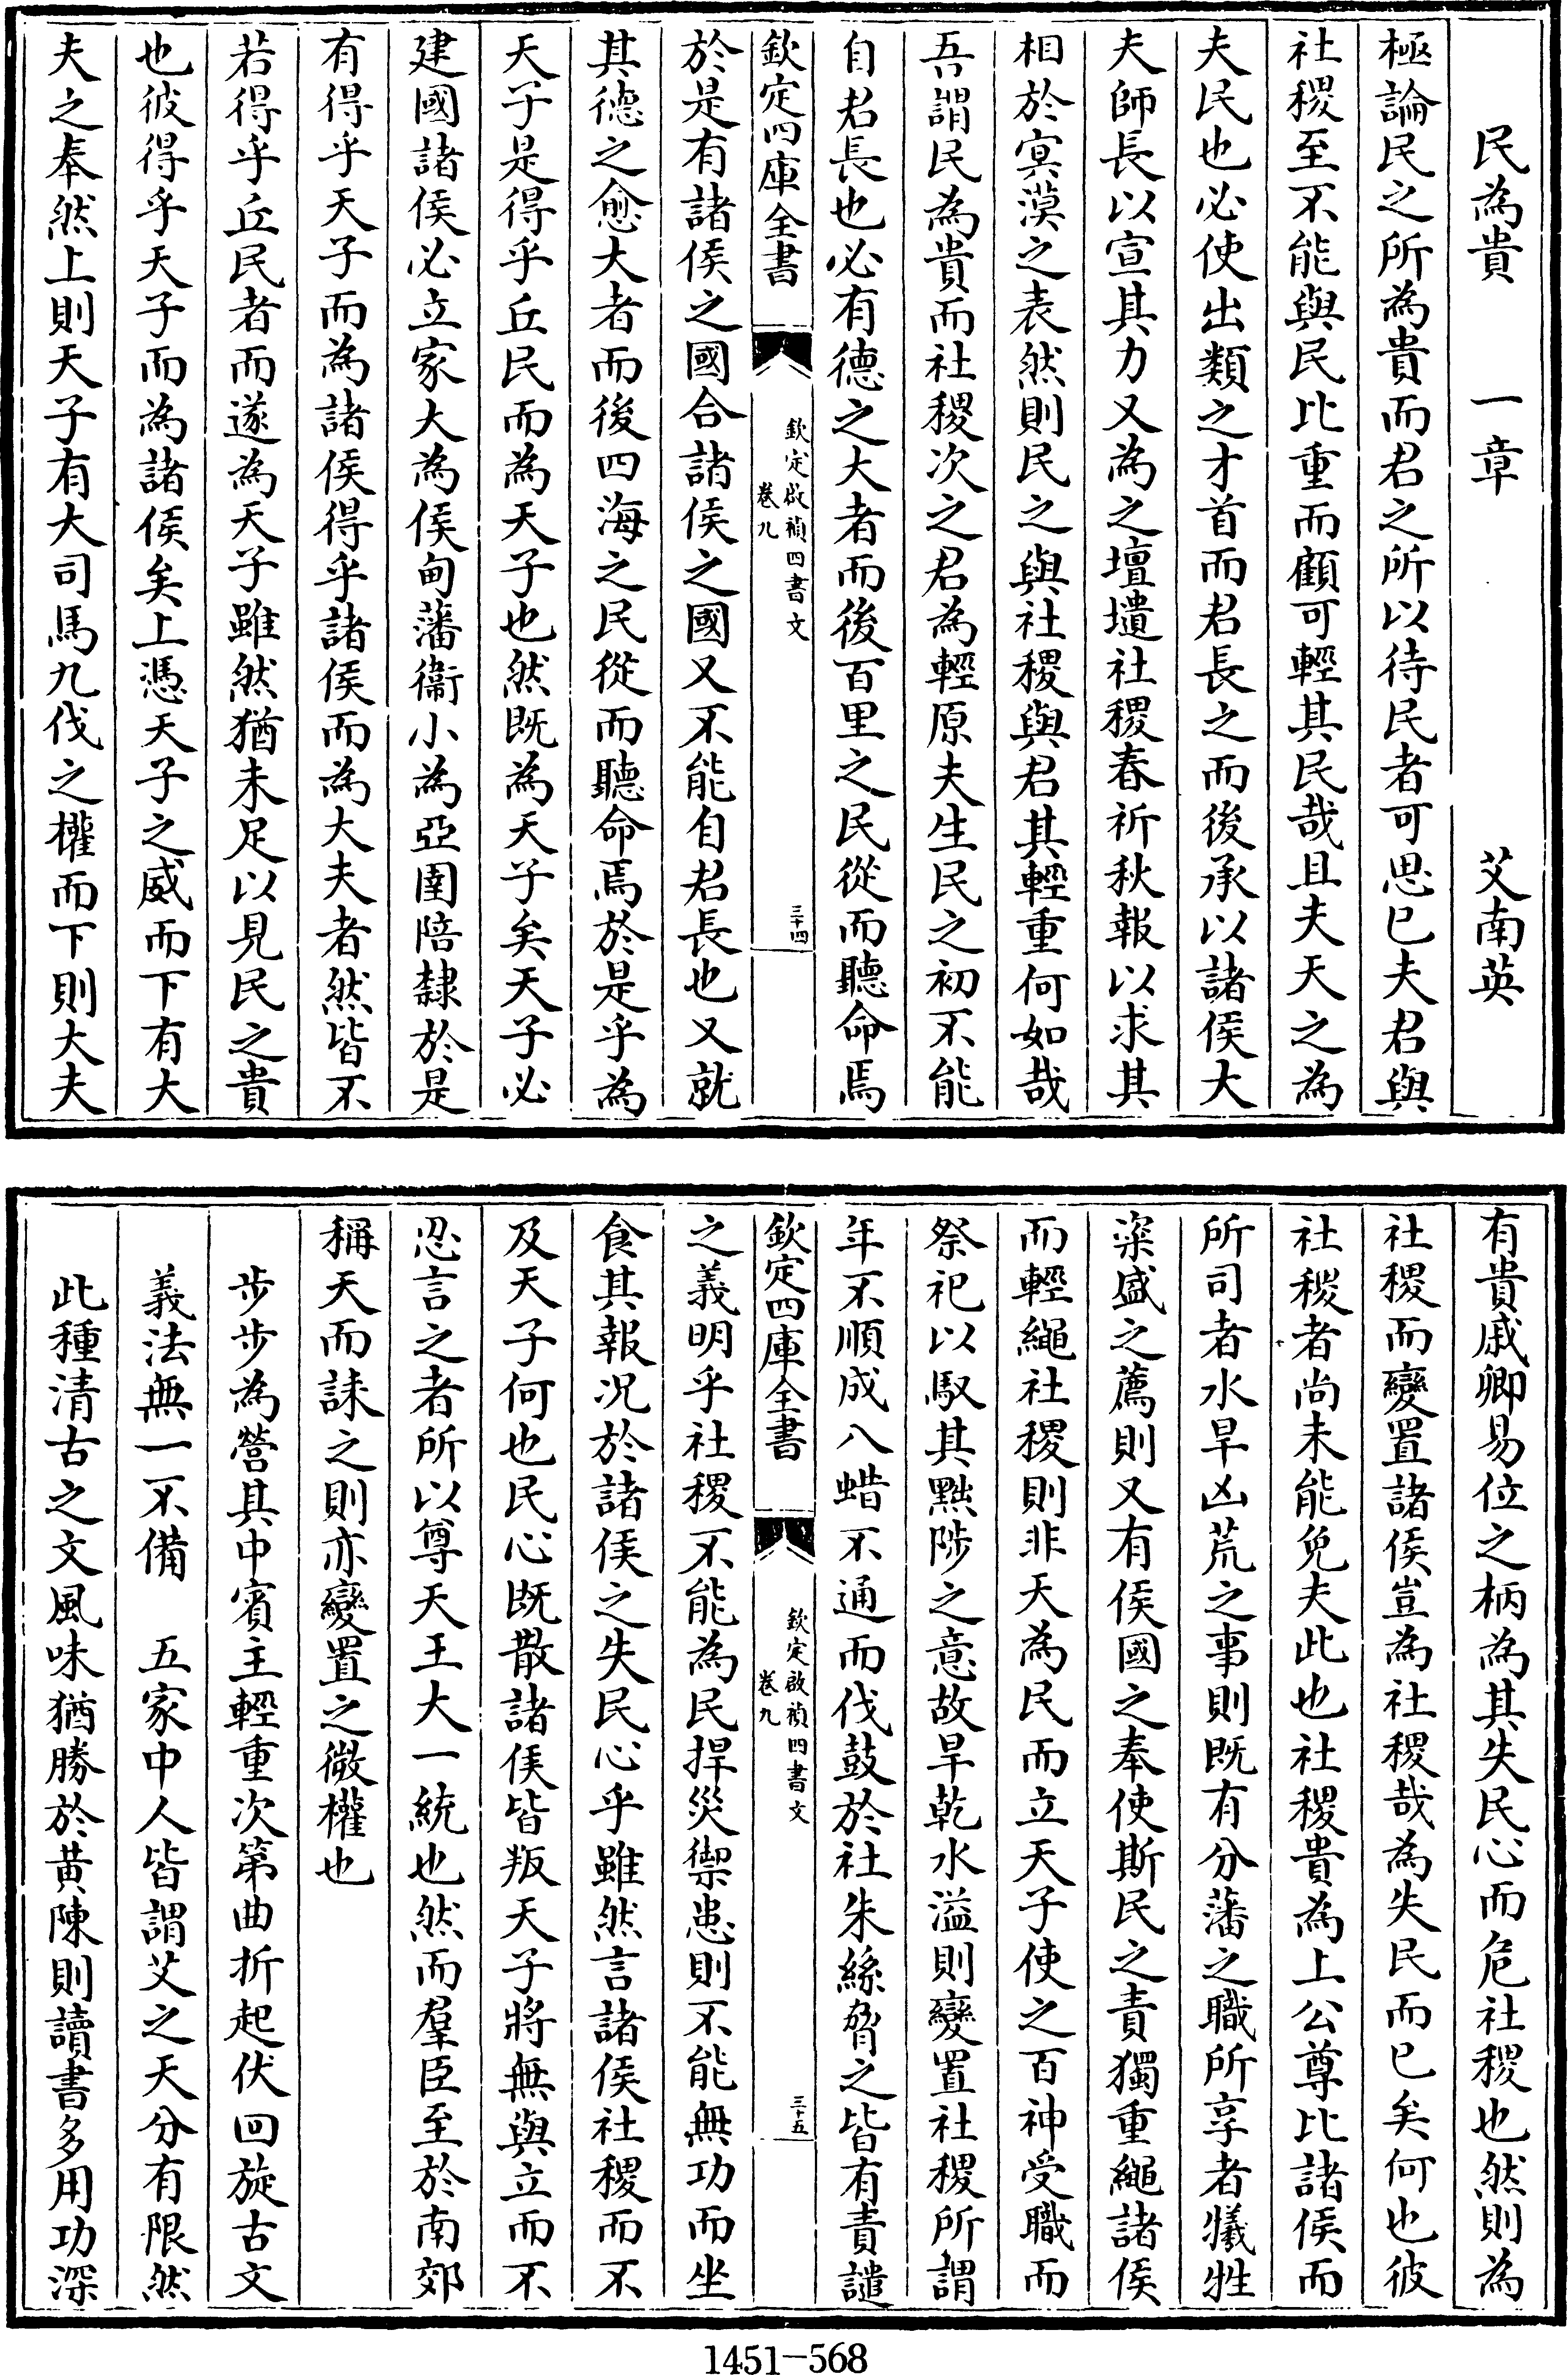 民為貴　一章　艾南英
極論民之所為貴而君之所以待民者可思已夫君與
社稷至不能與民比重而顧可輕其民哉且夫天之為
夫民也必使出類之才首而君長之而後承以諸侯大
夫師長以宣其力又為之壇壝社稷春祈秋報以求其
相於冥漠之表然則民之與社稷與君其輕重何如哉
吾謂民為貴而社稷次之君為輕原夫生民之初不能
自君長也必有德之大者而後百里之民從而聽命焉
欽定四庫全書
欽定啟禎四書文
卷九
三十四
於是有諸侯之國合諸侯之國又不能自君長也又就
其德之愈大者而後四海之民從而聽命焉於是乎為
天子是得乎丘民而為天子也然既為天子矣天子必
建國諸侯必立家大為侯甸藩衞小為亞圉陪隸於是
有得乎天子而為諸侯得乎諸侯而為大夫者然皆不
若得乎丘民者而遂為天子雖然猶未足以見民之貴
也彼得乎天子而為諸侯矣上憑天子之威而下有大
夫之奉然上則天子有大司馬九伐之權而下則大夫
有貴戚卿易位之柄為其失民心而危社稷也然則為
社稷而變置諸侯豈為社稷哉為失民而已矣何也彼
社稷者尚未能免夫此也社稷貴為上公尊比諸侯而
所司者水旱凶荒之事則既有分藩之職所享者犧牲
粢盛之薦則又有侯國之奉使斯民之責獨重繩諸侯
而輕繩社稷則非天為民而立天子使之百神受職而
祭祀以馭其黜陟之意故旱乾水溢則變置社稷所謂
年不順成八蜡不通而伐鼓於社朱絲脅之皆有責譴
欽定四庫全書
欽定啟禎四書文
卷九
三十五
之義明乎社稷不能為民捍災禦患則不能無功而坐
食其報況於諸侯之失民心乎雖然言諸侯社稷而不
及天子何也民心既散諸侯皆叛天子將無與立而不
忍言之者所以尊天王大一統也然而羣臣至於南郊
稱天而誄之則亦變置之微權也
步步為營其中賓主輕重次第曲折起伏回旋古文
義法無一不備　五家中人皆謂艾之天分有限然
此種清古之文風味猶勝於黃陳則讀書多用功深
1451-568